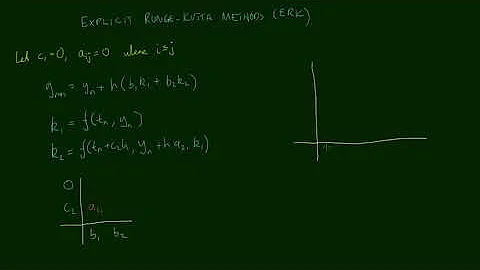 EXPLICIT RUNGE-KUTTA METHODS (ERK)
Let c₁=0, aᵢⱼ=0 where i≤j
yₙ₊₁ = yₙ + h(b₁k₁ + b₂k₂)
k₁ = f(tₙ, yₙ)
k₂ = f(tₙ+c₂h, yₙ+ha₂₁k₁)
0
c₂ a₂₁
b₁ b₂